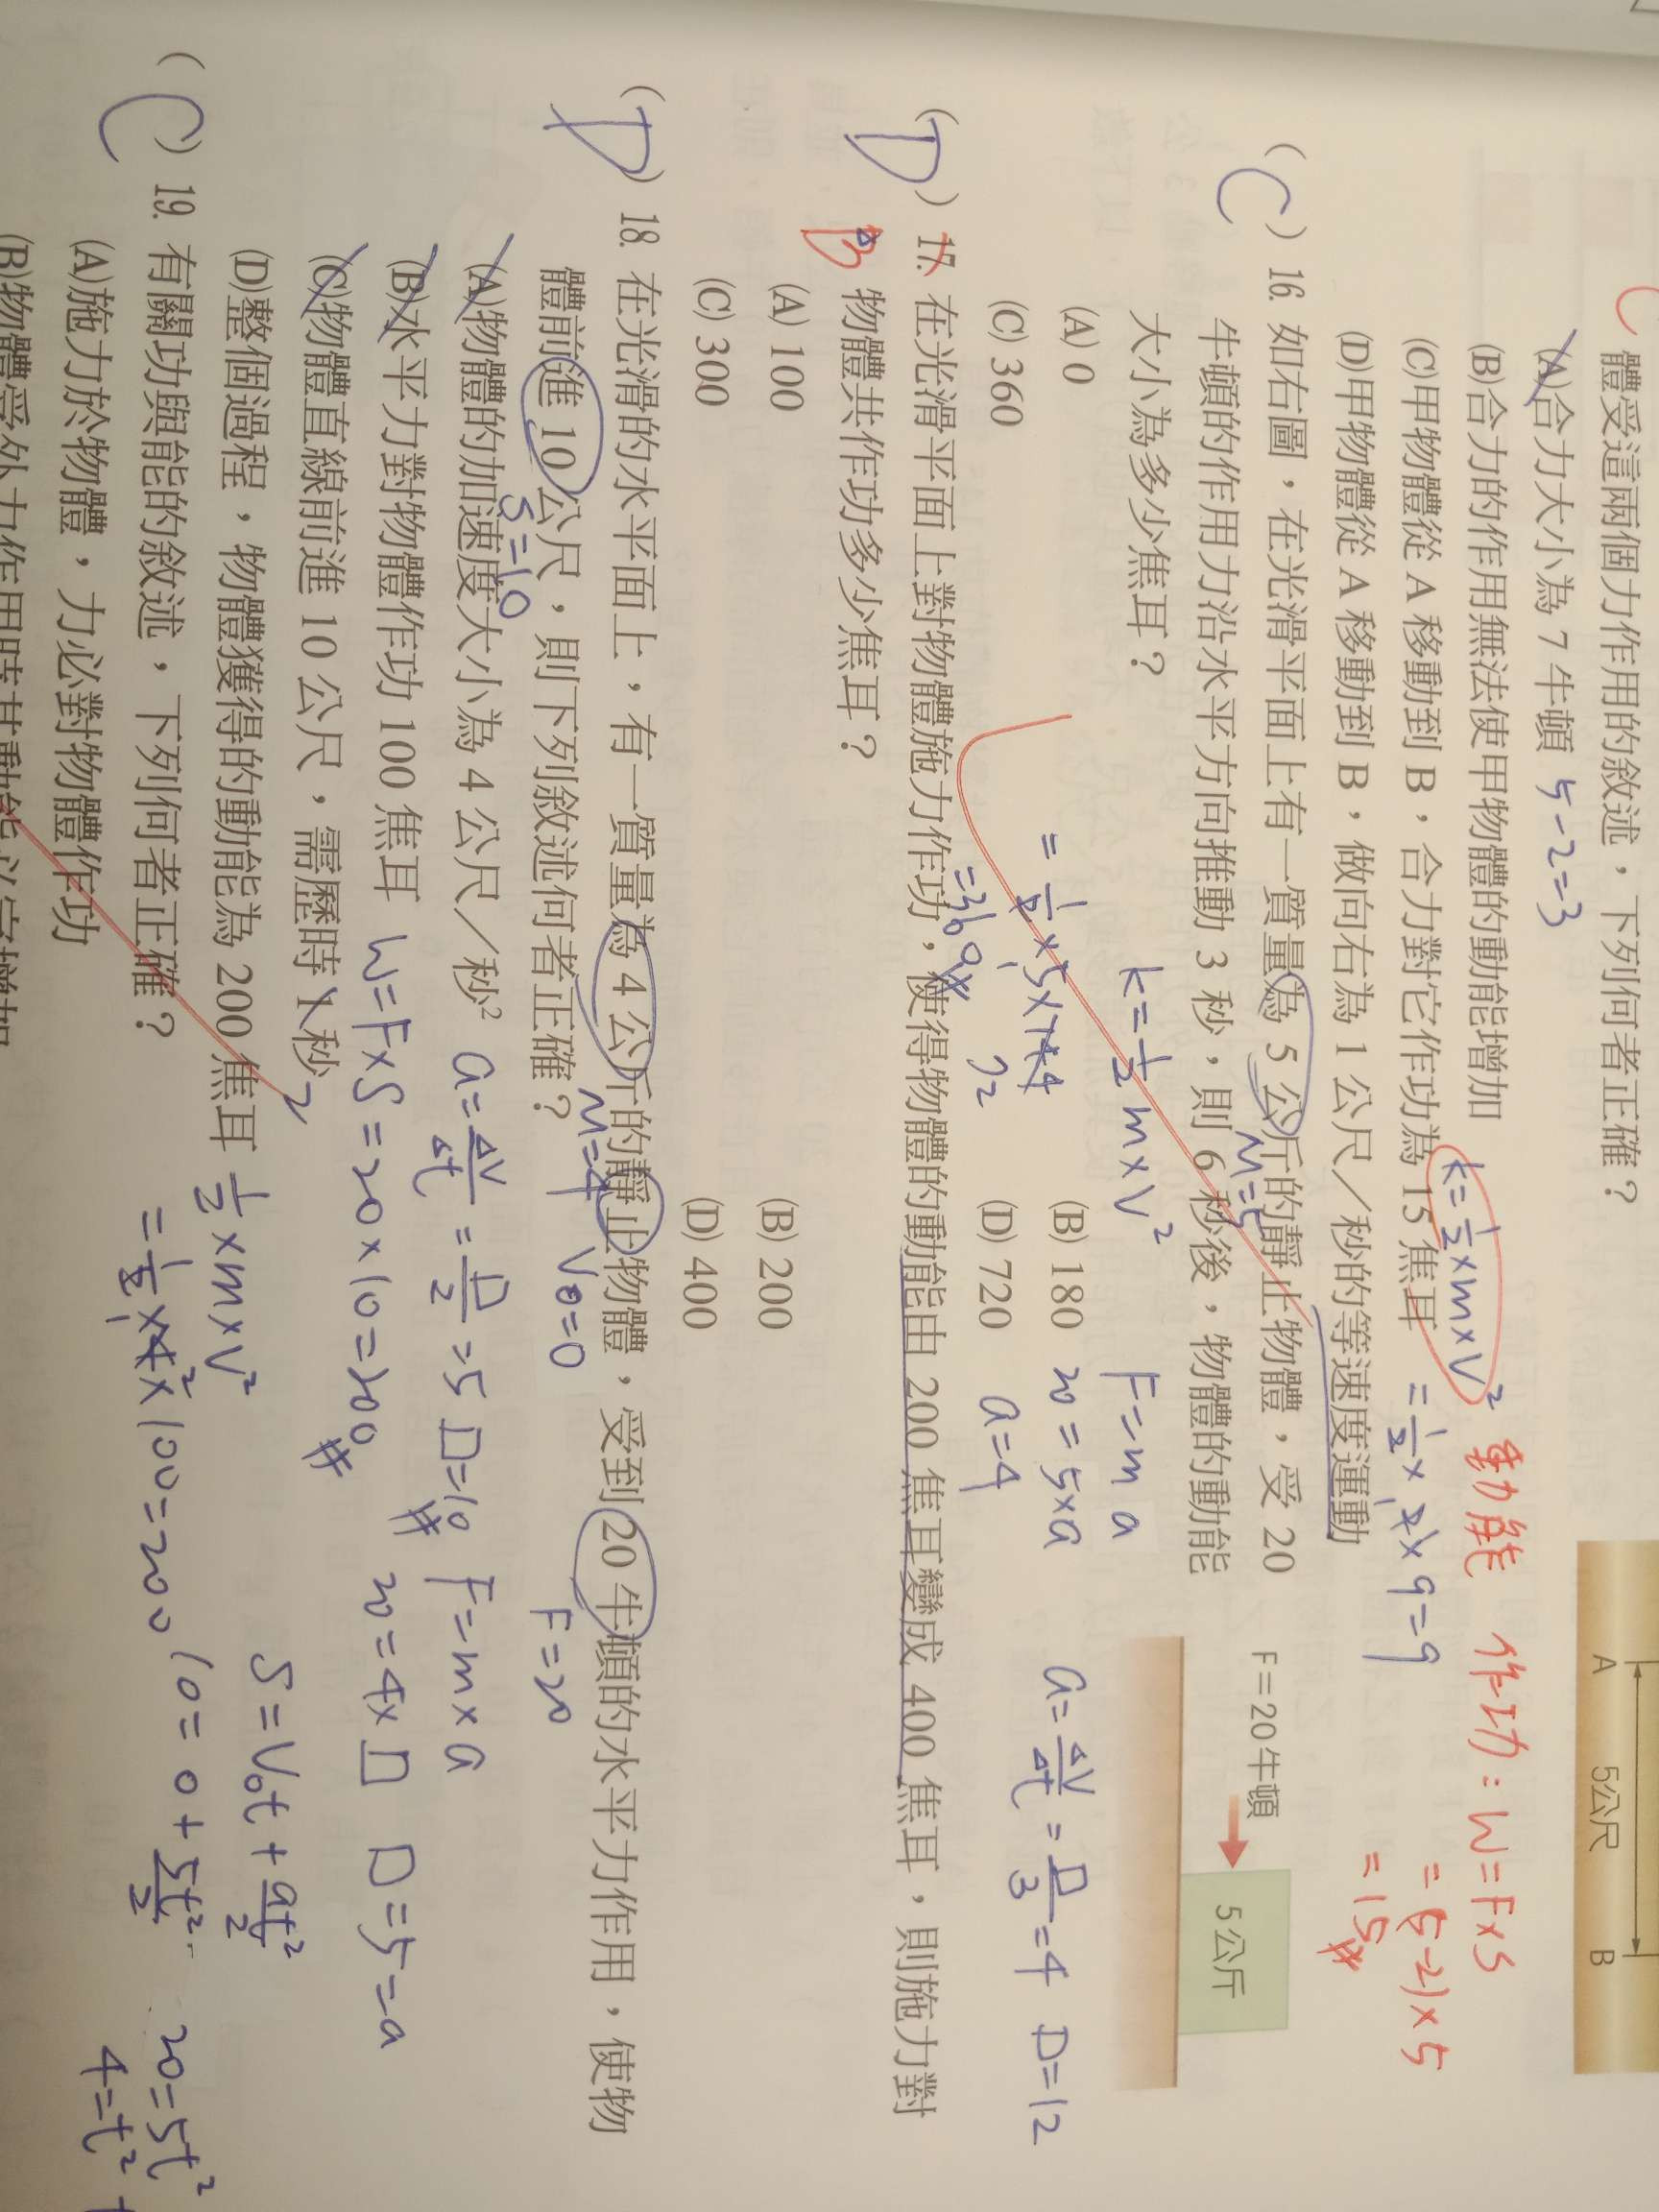 體受這兩個力作用的敘述，下列何者正確？
(A)合力大小為 7 牛頓 5-2=3
(B)合力的作用無法使甲物體的動能增加
k=1/2×m×V² 動能 作功：W=F×S
(C)甲物體從 A 移動到 B，合力對它作功為 15 焦耳
=1/2×2×9=9
=(5-2)×5
=15#
(D)甲物體從 A 移動到 B，做向右為 1 公尺／秒的等速度運動
A 5公尺 B
(C) 16. 如右圖，在光滑平面上有一質量為 5 公斤的靜止物體，受 20
M=5
牛頓的作用力沿水平方向推動 3 秒，則 6 秒後，物體的動能
大小為多少焦耳？
F=20牛頓
5公斤
k=1/2 m×V² F=ma
(A) 0
(B) 180
20=5×a
(C) 360
(D) 720
a=4
a=ΔV/Δt=□/3=4 □=12
=1/2×5×144
72
=360#
(D) 17. 在光滑平面上對物體施力作功，使得物體的動能由 200 焦耳變成 400 焦耳，則施力對
B 物體共作功多少焦耳？
(A) 100
(B) 200
(C) 300
(D) 400
(D) 18. 在光滑的水平面上，有一質量為 4 公斤的靜止物體，受到 20 牛頓的水平力作用，使物
M=4 V0=0 F=20
體前進 10 公尺，則下列敘述何者正確？
S=10
(A)物體的加速度大小為 4 公尺／秒² a=ΔV/Δt=□/2=5 □=10# F=m×a
(B)水平力對物體作功 100 焦耳 W=F×S=20×10=200# 20=4×□ □=5=a
(C)物體直線前進 10 公尺，需歷時 1 秒 2
S=V0t+at²/2
(D)整個過程，物體獲得的動能為 200 焦耳 1/2×m×V²
=1/2×4×100=200
10=0+5t²/2
20=5t²
4=t²
(C) 19. 有關功與能的敘述，下列何者正確？
(A)施力於物體，力必對物體作功
(B)物體受外力作用時其動能必定增加